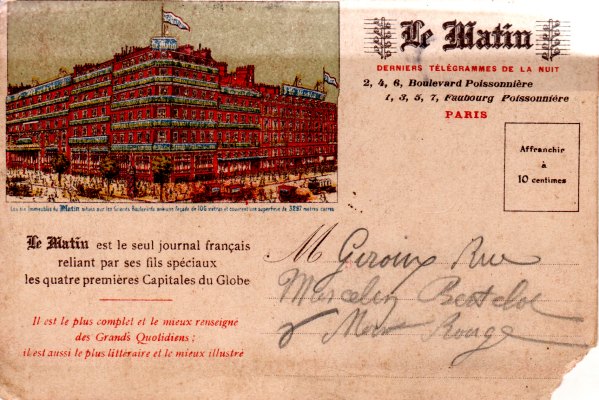 Le Matin
DERNIERS TÉLÉGRAMMES DE LA NUIT
2, 4, 6, Boulevard Poissonnière
1, 3, 5, 7, Faubourg Poissonnière
PARIS
Affranchir
à
10 centimes
Les six Immeubles du Matin situés sur les Grands Boulevards avec une façade de 106 mètres et couvrent une superficie de 3297 mètres carrés
Le Matin est le seul journal français
reliant par ses fils spéciaux
les quatre premières Capitales du Globe
Il est le plus complet et le mieux renseigné
des Grands Quotidiens :
il est aussi le plus littéraire et le mieux illustré
M Giroux Rue
Marcelin
Rouge